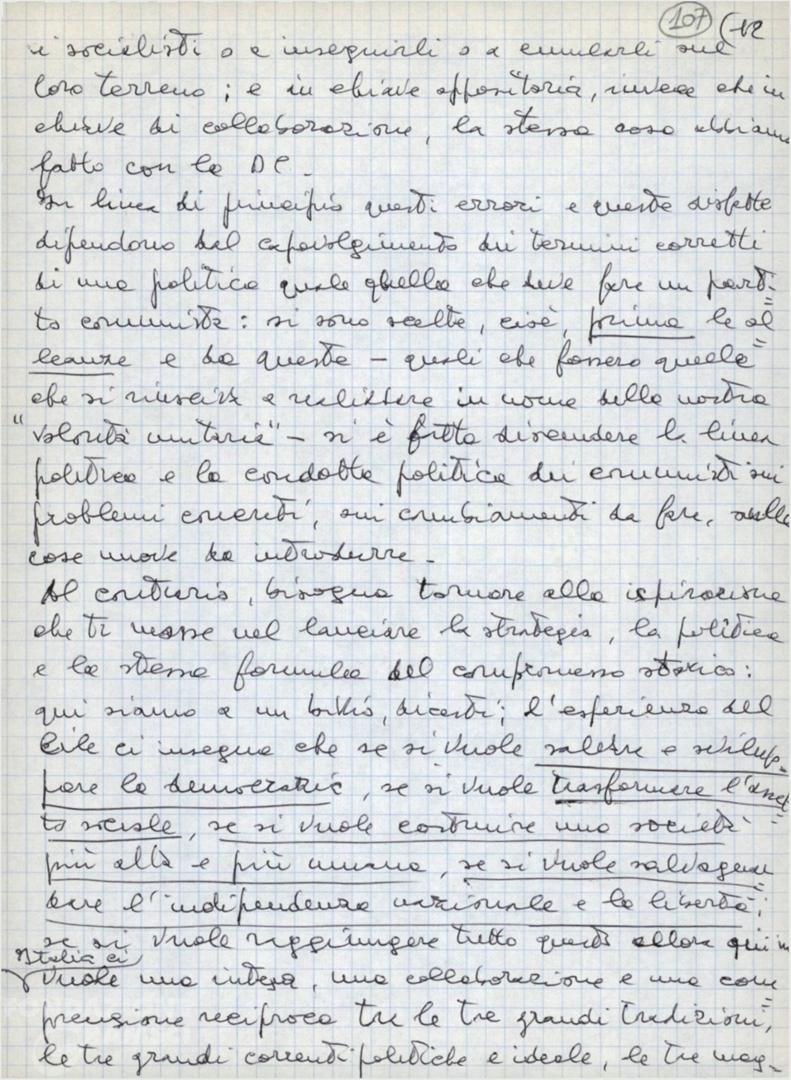 107 (12
i socialisti o a inseguirli o a emularli sul
loro terreno; e in chiave oppositoria, invece che in
chiave di collaborazione, la stessa cosa abbiamo
fatto con la DC.
In linea di principio questi errori e queste disfatte
dipendono dal capovolgimento dei termini corretti
di una politica quale quella che deve fare un parti=
to comunista: si sono scelte, cioè, prima le al=
leanze e da queste – quali che fossero quelle
che si riusciva a realizzare in nome della nostra
"volontà unitaria" – si è fatta discendere la linea
politica e la condotta politica dei comunisti sui
problemi concreti, sui cambiamenti da fare, sulle
cose nuove da introdurre –
Al contrario, bisogna tornare alla ispirazione
che ti mosse nel lanciare la strategia, la politica
e la stessa formula del compromesso storico:
qui siamo a un bivio, dicesti; l'esperienza del
Cile ci insegna che se si vuole salvare e svilup=
pare la democrazia, se si vuole trasformare l'asset=
to sociale, se si vuole costruire una società
più alta e più umana, se si vuole salvaguar=
dare l'indipendenza nazionale e la libertà;
se si vuole raggiungere tutto questo allora qui in
Italia ci
vuole una intesa, una collaborazione e una com=
prensione reciproca tra le tre grandi tradizioni,
le tre grandi correnti politiche e ideale, le tre mag=